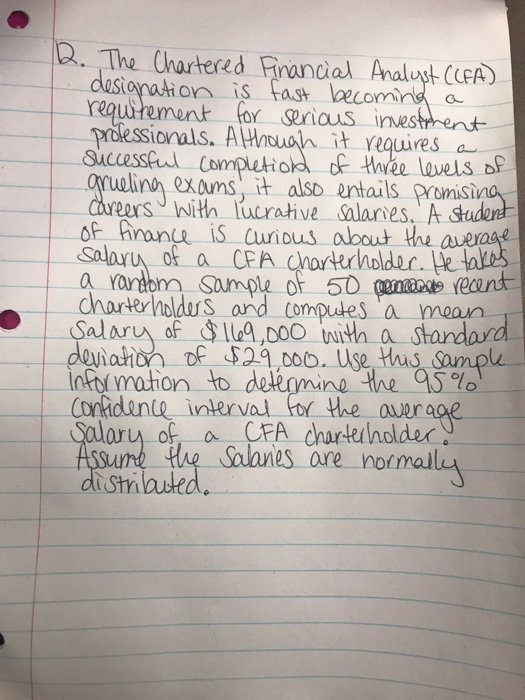 12. The Chartered Financial Analyst (CFA)
designation is fast becoming a
requirement for serious investment
professionals. Although it requires a
successful completion of three levels of
grueling exams, it also entails promising
careers with lucrative salaries. A student
of finance is curious about the average
salary of a CFA charterholder. He takes
a random sample of 50 recent
charterholders and computes a mean
salary of $169,000 with a standard
deviation of $29,000. Use this sample
information to determine the 95%
confidence interval for the average
salary of a CFA charterholder.
Assume the salaries are normally
distributed.